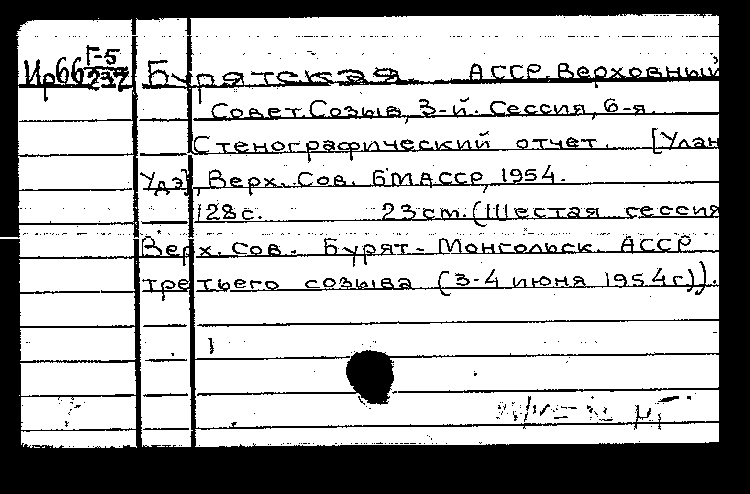 Ир66 Г-5/232 Бурятская АССР. Верховный
Совет. Созыв, 3-й. Сессия, 6-я.
Стенографический отчет. [Улан
Удэ], Верх. Сов. БМАССР, 1954.
128 с. 23 cm. (Шестая сессия
Верх. Сов. Бурят-Монгольск. АССР
третьего созыва (3-4 июня 1954 г)).
1